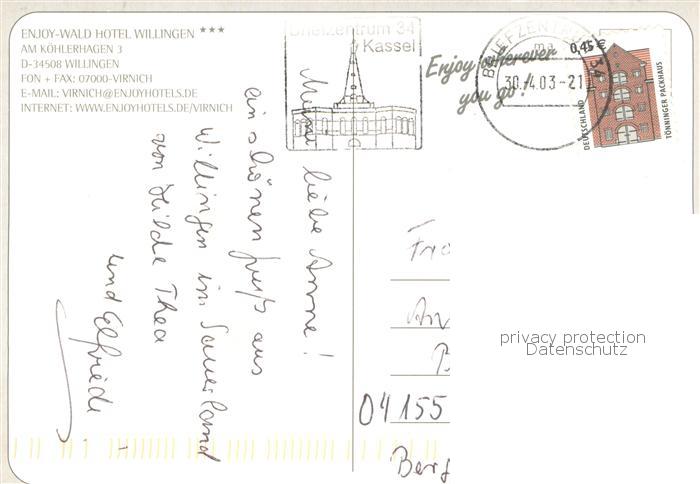 ENJOY-WALD HOTEL WILLINGEN ***
AM KÖHLERHAGEN 3
D-34508 WILLINGEN
FON + FAX: 07000-VIRNICH
E-MAIL: VIRNICH@ENJOYHOTELS.DE
INTERNET: WWW.ENJOYHOTELS.DE/VIRNICH
Briefzentrum 34
Kassel
Enjoy wherever
you go!
BRIEFZENTRUM 34
ma
30.4.03-21
0,45 €
DEUTSCHLAND
TÖNNINGER PACKHAUS
Meine liebe Anne!
ein schönen Gruß aus
Willingen im Sauerland
von Hilde Thea
und Elfriede
04155
privacy protection
Datenschutz